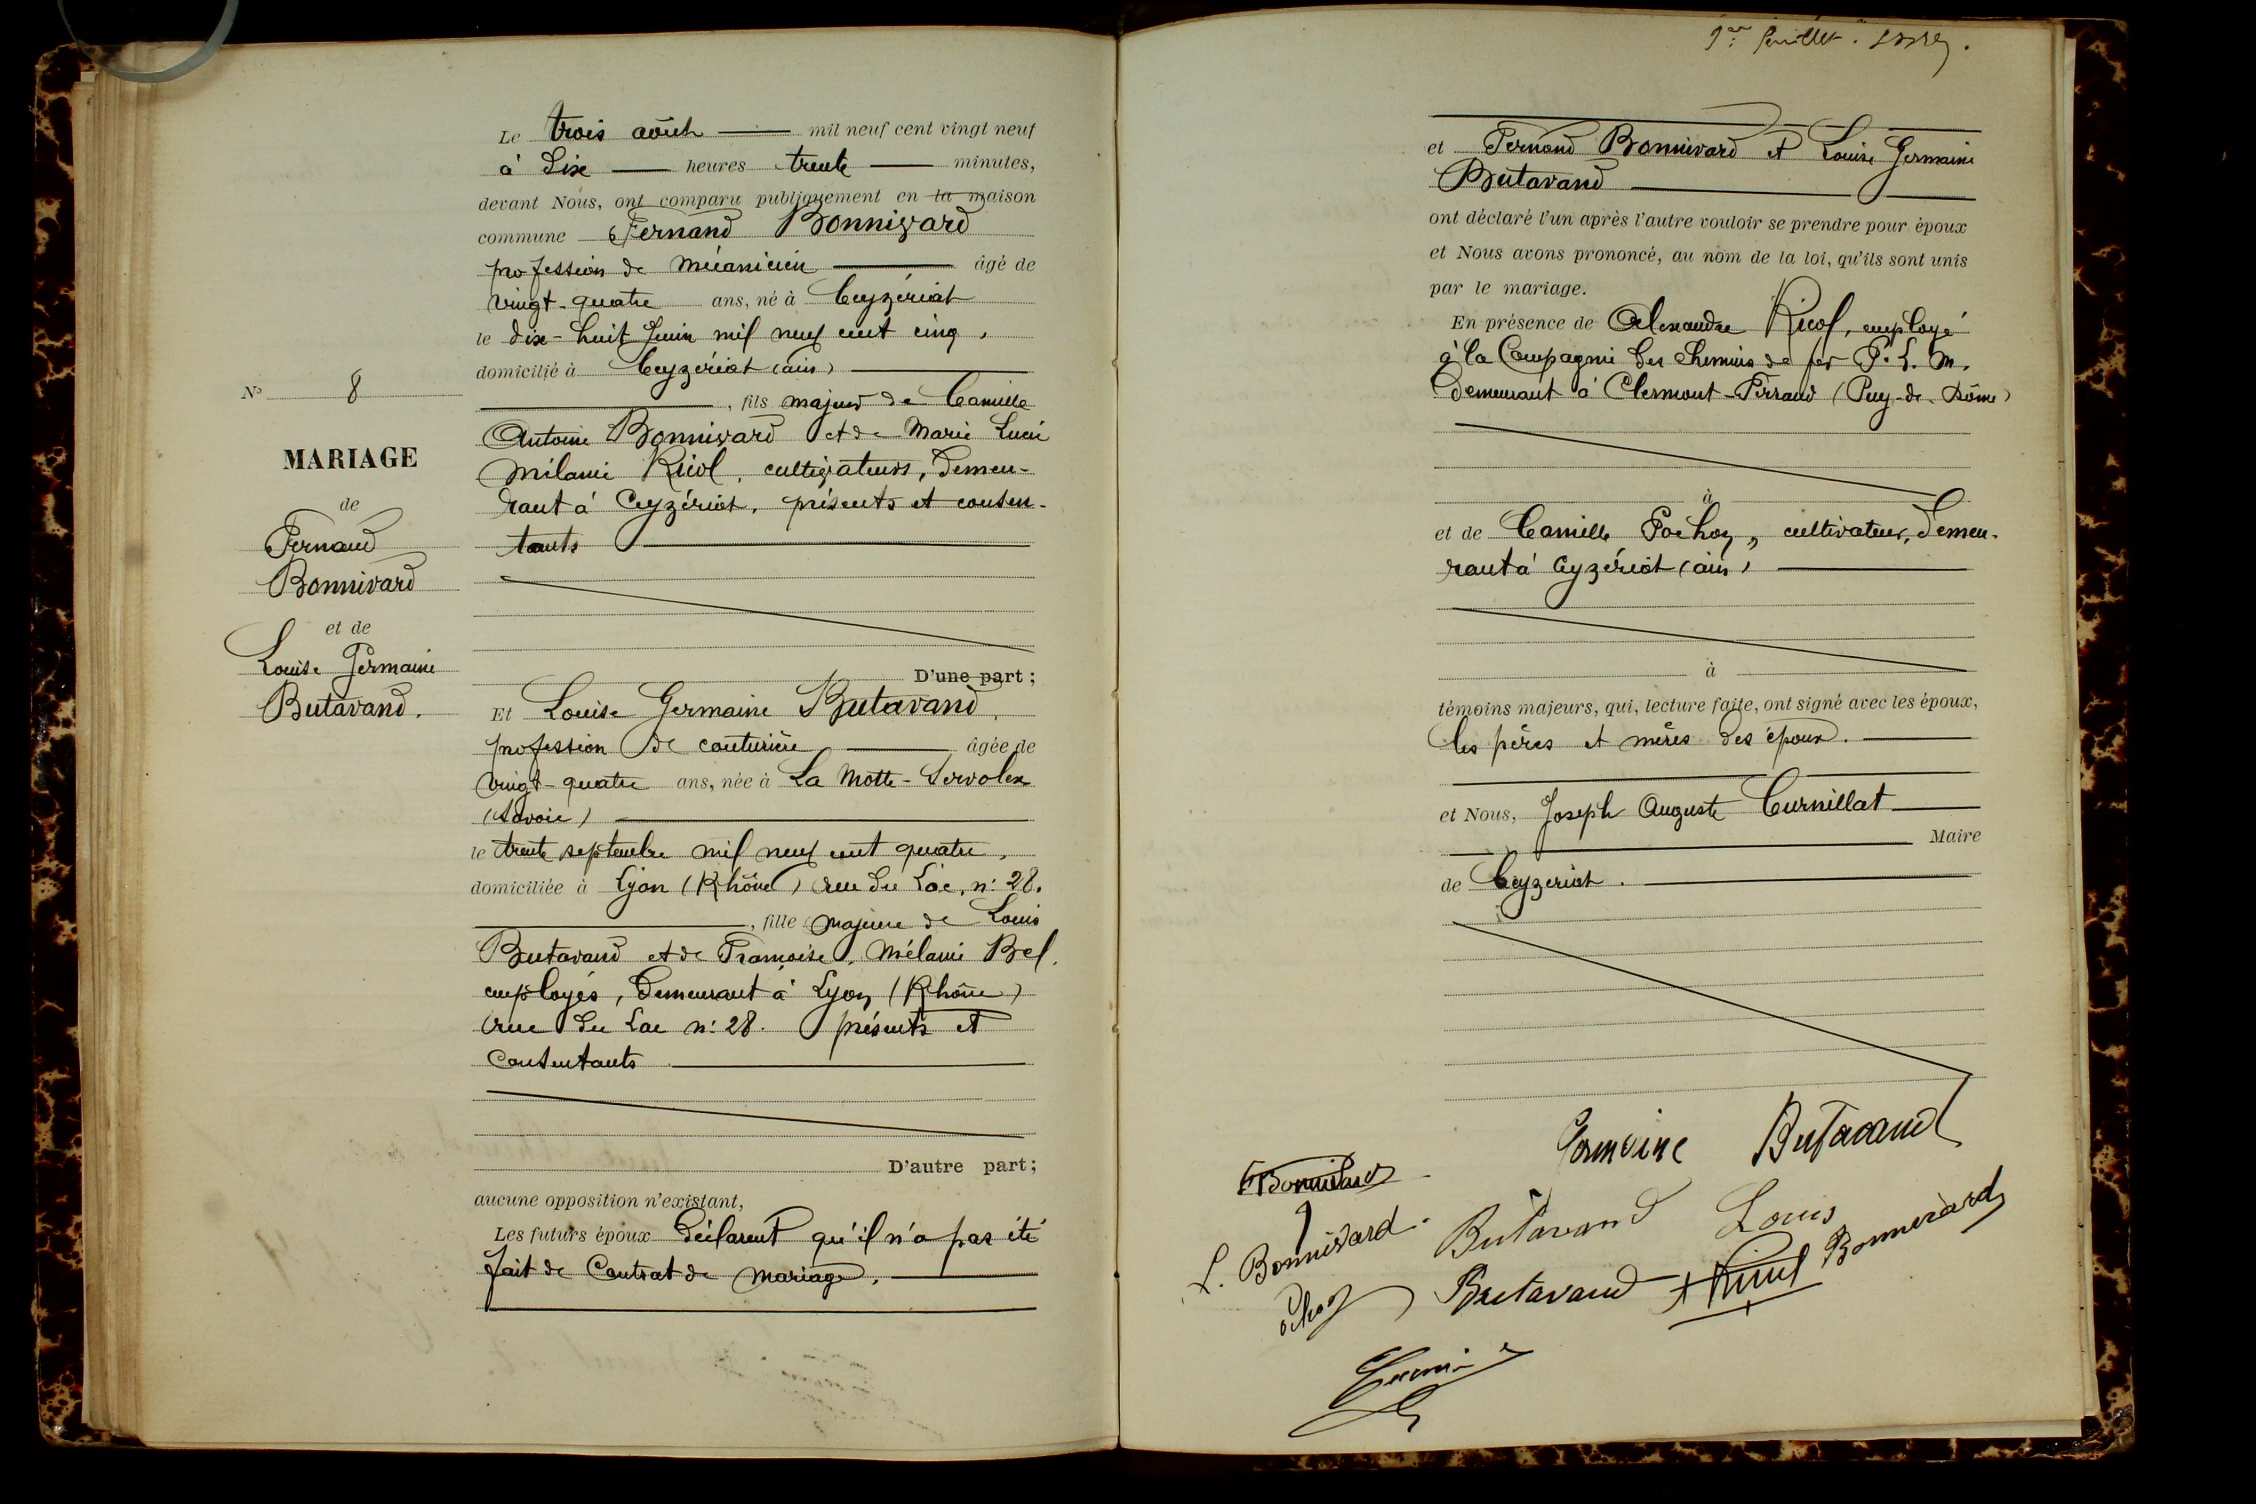 Le trois août mil neuf cent vingt neuf
à dix heures trente minutes,
devant Nous, ont comparu publiquement en la maison
commune Fernand Bonnivard
profession de mécanicien âgé de
vingt-quatre ans, né à Ceyzériat
le dix-huit Juin mil neuf cent cinq,
domicilié à Ceyzériat (Ain)
, fils majeur de Camille
Antoine Bonnivard et de Marie Lucie
Mélanie Ricol, cultivateurs, demeu-
rant à Ceyzériat, présents et consen-
tants
N° 8
MARIAGE
de
Fernand
Bonnivard
et de
Louise Germaine
Butavand.
D'une part;
Et Louise Germaine Butavand,
profession de couturière âgée de
vingt-quatre ans, née à La Motte-Servolex
(Savoie)
le trente septembre mil neuf cent quatre,
domiciliée à Lyon (Rhône) rue du Lac, n: 28.
, fille majeure de Louis
Butavand et de Françoise, Mélanie Bel,
employés, demeurant à Lyon (Rhône)
rue du Lac n: 28. présents et
consentants
D'autre part;
aucune opposition n'existant,
Les futurs époux déclarent qu'il n'a pas été
fait de contrat de mariage.
et Fernand Bonnivard et Louise Germaine
Butavand
ont déclaré l'un après l'autre vouloir se prendre pour époux
et Nous avons prononcé, au nom de la loi, qu'ils sont unis
par le mariage.
En présence de Alexandre Ricol, employé
à la Compagnie des chemins de fer P. L. M.
demeurant à Clermont-Ferrand (Puy-de-Dôme)
à
et de Camille Pochon, cultivateur, demeu-
rant à Ceyzériat (Ain)
à
témoins majeurs, qui, lecture faite, ont signé avec les époux,
les pères et mères des époux.
et Nous, Joseph Auguste Curnillat
Maire
de Ceyzeriat.
Germaine Butavand
F Bonnivard
L. Bonnivard
Butavand Louis
Bonnivard
Butavand
A Ricol